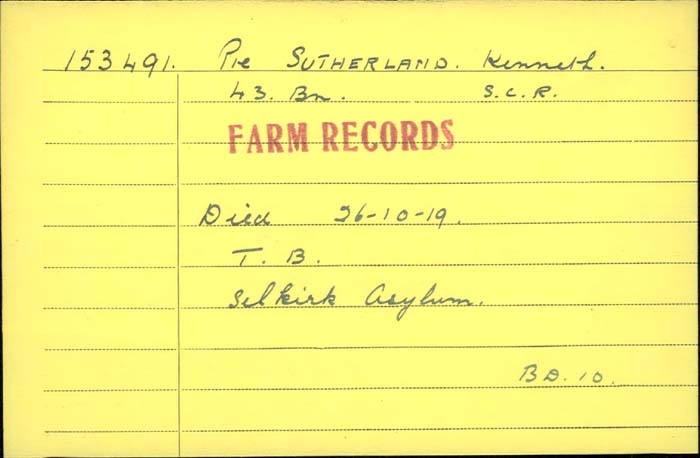 153491. Pte SUTHERLAND. Kenneth.
43. Bn. S.C.R.
FARM RECORDS
Died 26-10-19.
T. B.
Selkirk Asylum.
BD. 10.